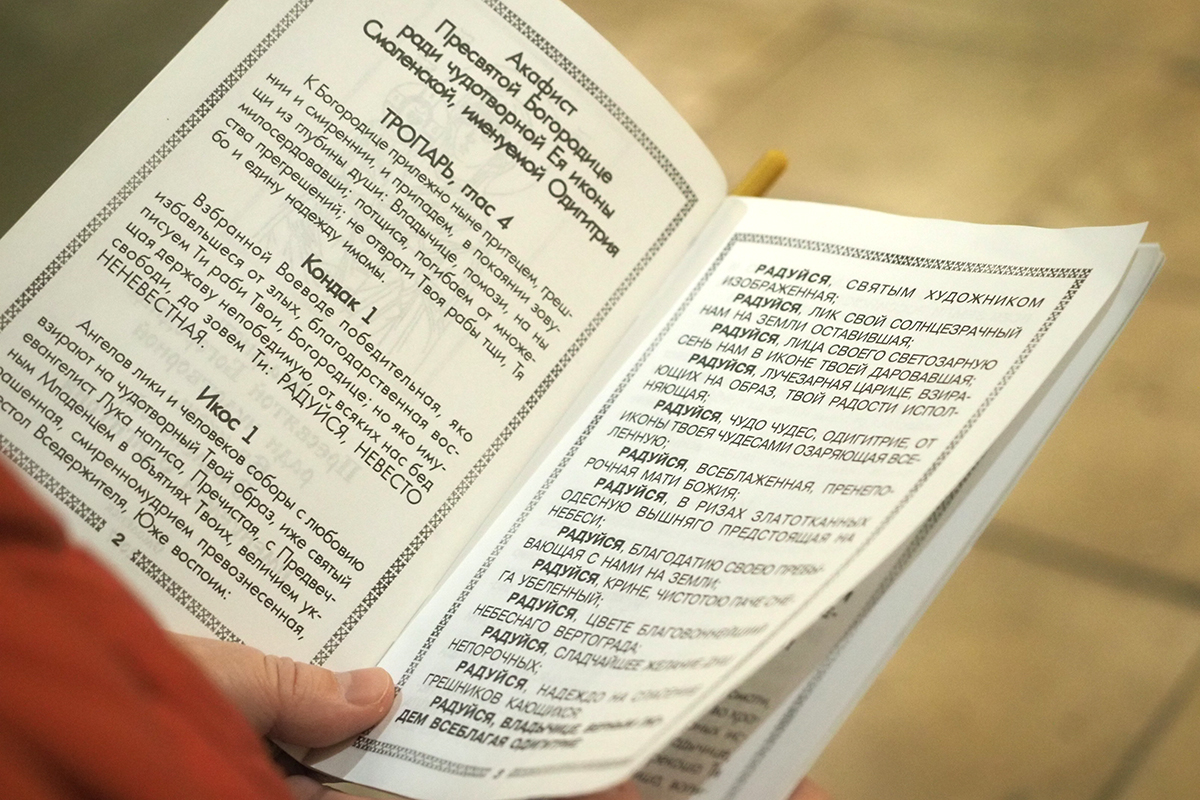 Акафист
Пресвятой Богородице
ради чудотворной Ея иконы
Смоленской, именуемой Одигитрия
ТРОПАРЬ, глас 4
К Богородице прилежно ныне притецем, греш-
нии и смиреннии, и припадем, в покаянии зову-
щи из глубины души: Владычице, помози, на ны
милосердовавши; потщися, погибаем от множе-
ства прегрешений; не отврати Твоя рабы тщи, Тя
бо и едину надежду имамы.
Кондак 1
Взбранной Воеводе победительная, яко
избавльшеся от злых, благодарственная вос-
писуем Ти раби Твои, Богородице; но яко иму-
щая державу непобедимую, от всяких нас бед
свободи, да зовем Ти: РАДУЙСЯ, НЕВЕСТО
НЕНЕВЕСТНАЯ.
Икос 1
Ангелов лики и человеков соборы с любовию
взирают на чудотворный Твой образ, иже святый
евангелист Лука написа, Пречистая, с Предвеч-
ным Младенцем в объятиях Твоих, величаем ук-
рашенная, смиренномудрием превознесенная,
Вседержителя, Юже воспоим:
2
РАДУЙСЯ, СВЯТЫМ ХУДОЖНИКОМ
ИЗОБРАЖЕННАЯ;
РАДУЙСЯ, ЛИК СВОЙ СОЛНЦЕЗРАЧНЫЙ
НАМ НА ЗЕМЛИ ОСТАВИВШАЯ;
РАДУЙСЯ, ЛИЦА СВОЕГО СВЕТОЗАРНУЮ
СЕНЬ НАМ В ИКОНЕ ТВОЕЙ ДАРОВАВШАЯ;
РАДУЙСЯ, ЛУЧЕЗАРНАЯ ЦАРИЦЕ, ВЗИРА-
ЮЩИХ НА ОБРАЗ, ТВОЙ РАДОСТИ ИСПОЛ-
НЯЮЩАЯ;
РАДУЙСЯ, ЧУДО ЧУДЕС, ОДИГИТРИЕ, ОТ
ИКОНЫ ТВОЕЯ ЧУДЕСАМИ ОЗАРЯЮЩАЯ ВСЕ-
ЛЕННУЮ;
РАДУЙСЯ, ВСЕБЛАЖЕННАЯ, ПРЕНЕПО-
РОЧНАЯ МАТИ БОЖИЯ;
РАДУЙСЯ, В РИЗАХ ЗЛАТОТКАННЫХ
ОДЕСНУЮ ВЫШНЯГО ПРЕДСТОЯЩАЯ НА
НЕБЕСИ;
РАДУЙСЯ, БЛАГОДАТИЮ СВОЕЮ ПРЕБЫ-
ВАЮЩАЯ С НАМИ НА ЗЕМЛИ;
РАДУЙСЯ, КРИНЕ, ЧИСТОТОЮ ПАЧЕ СНЕ-
ГА УБЕЛЕННЫЙ;
РАДУЙСЯ, ЦВЕТЕ БЛАГОВОННЕЙШИЙ
НЕБЕСНАГО ВЕРТОГРАДА;
РАДУЙСЯ, СЛАДЧАЙШЕЕ ЖЕЛАНИЕ ДУШ
НЕПОРОЧНЫХ;
РАДУЙСЯ, НАДЕЖДО НА СПАСЕНИЕ
ГРЕШНИКОВ КАЮЩИХСЯ
РАДУЙСЯ, ВЛАДЫЧИЦЕ,
ДЕМ ВСЕБЛАГАЯ ОДИГИТРИЕ
3